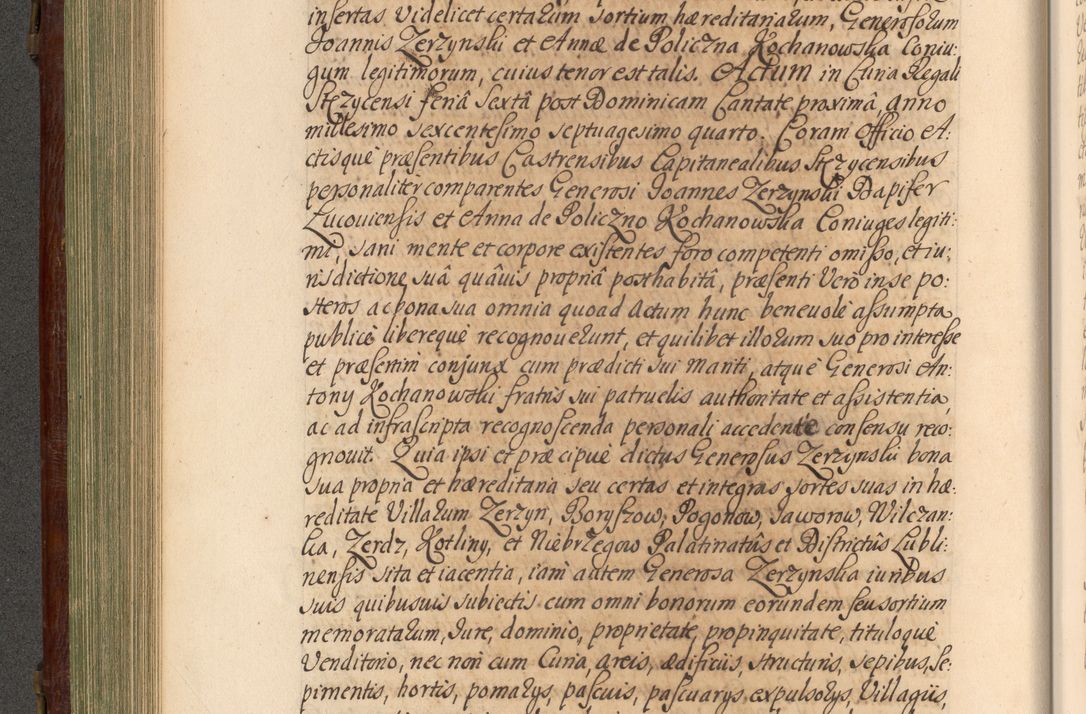 insertas videlicet certarum sortium hæreditariarum, Generosorum
Joannis Zerzynski et Annæ de Policzna Kochanowska Coniu:
gum legitimorum, cuius tenor est talis. Actum in Curia Regali
Stezycensi feriâ sextâ post Dominicam Cantate proximâ, anno
millesimo sexcentesimo septuagesimo quarto. Coram Officio et A:
ctisquè præsentibus Castrensibus Capitanealibus Stezycensibus
personalitèr comparentes Generosi Joannes Zerzynski Dapifer
Lucoviensis et Anna de Policzno Kochanowska Coniuges legiti:
mi, sani mente et corpore existentes, foro competenti omisso, et iu:
risdictione suâ quâuis propriâ posthabitâ, præsenti verò in se po:
steros ac bona sua omnia quoad Actum hunc benevolè assumpta,
publicè libereque recognoverunt, et quilibet illorum suo pro interesse
et præsertim conjunx cum prædicti sui Mariti, atquè Generosi An:
tony Kochanowski fratris sui patruelis authoritate et assistentia,
ac ad infrascripta recognoscenda personali accedente consensu reco:
gnovit. Quia ipsi et præcipuè dictus Generosus Zerzynski bona
sua propria et hæreditaria seu certas et integras sortes suas in hæ:
reditate Villarum Zerzyn, Boryszow, Pogonow, Jaworow, Wilczan:
ka, Zerdz, Kotliny, et Niebrzegow Palatinatûs et Districtûs Lubli:
nensis sita et iacentia, iam autem Generosa Zerzynska iuribus
suis quibusuis subiectis cum omni bonorum eorundem seu sortium
memoratarum, Jure, dominio, proprietate, propinquitate, tituloquè
Venditorio, nec non cum Curia, areis, ædificiis, structuris, sepibus, se:
pimentis, hortis, pomarys, pascuis, pascuarys, expulsorys, Villagiis,